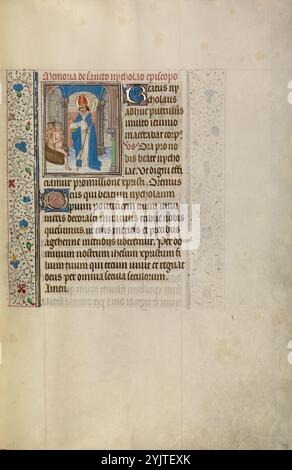 Memoria de sancto nycholao episcopo
Beatus ny
cholaus
adhuc puerulus
multo ieiunio
macerabat corp
us Ora pro no
bis beate nycho
lae Ut digni effi
ciamur promissione xpristi Oremus
Deus qui beatum nycholaum
pontificem tuum
decorasti miraculis tribue nobis
quesumus ut eius meritis et precibus
a gehenne incendijs liberemur Per do
minum nostrum ihesum xpristum fi
lium tuum qui tecum vivit et regnat
deus per omnia secula seculorum
Amen
alamy
Image ID: 2YJTEXK
www.alamy.com